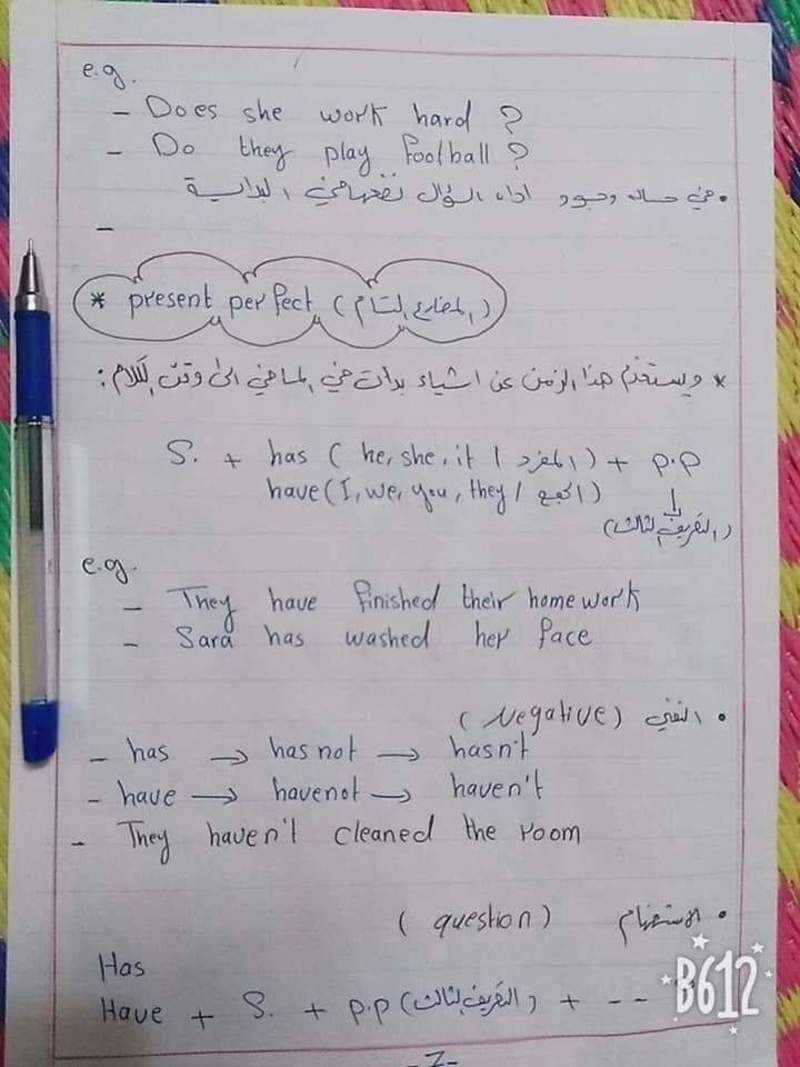 e.g.
- Does she work hard ?
- Do they play football ?
• في حالة وجود اداه السؤال نضعها في البداية
-
* present perfect (المضارع التام)
* ويستخدم هذا الزمن عن اشياء بدأت في الماضي الى وقت الكلام :
S. + has ( he, she, it / المفرد ) + p.p
have ( I, we, you, they / الجمع )
(التصريف الثالث)
e.g.
- They have finished their homework
- Sara has washed her face
• النفي (Negative)
- has → has not → hasn't
- have → havenot → haven't
- They haven't cleaned the room
• الاستفهام (question)
Has
Have + S. + p.p (التصريف الثالث) + -- ?
B612
-7-